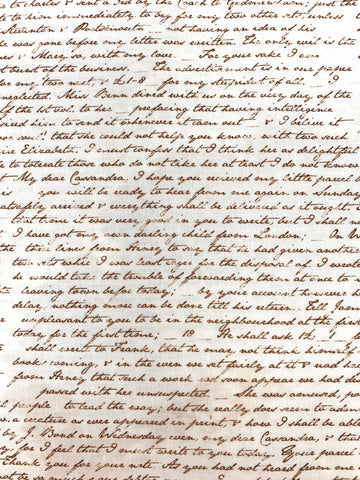 to Charles & sent a 3rd by the Coach to Godmersham; just the
to him immediately to say for my two other sets, unless
Steventon & Portsmouth — not having an idea of his
he was gone before my letter was written. The only evil is the
& Mary so, with my love. — For your sake I am
trust of the business. — The advertisement is in our paper
for my two next, & 28 for my stupidest of all. — I
neglected. Miss Benn dined with us on the very day of the
of the 1st vol. to her — prefacing that having intelligence
desired him to send it whenever it came out — & I believe it
poor soul! that she could not help you know, with two such
ire Elizabeth. I must confess that I think her as delightful
le to tolerate those who do not like her at least I do not know
t My dear Cassandra, I hope you received my little parcel
is you will be ready to hear from me again on Sunday
safely arrived & everything shall be delivered as it ought.
that time it was very good in you to write, but I shall
I have got my own darling child from London; — On W
the three lines from Henry to say that he had given another
two sets which I was least eager for the disposal of. I wrote
he would take the trouble of forwarding them at once to
leaving town before today; — by your account he was
delay, nothing more can be done till his return. Tell Jam
unpleasant to you to be in the neighbourhood at the first
today for the first time; — 18 — He shall ask 1£ —
shall write to Frank, that he may not think himself
book coming, & in the even we set fairly at it & read ha
from Henry that such a work would soon appear we had de
passed with her unsuspected. — She was amused,
people to lead the way; but she really does seem to adm
a creature as ever appeared in print, & how I shall be able
by J. Bond on Wednesday even, my dear Cassandra, & th
y, for I feel that I must write to you today. Your parcel
Thank you for your note. As you had not heard from me